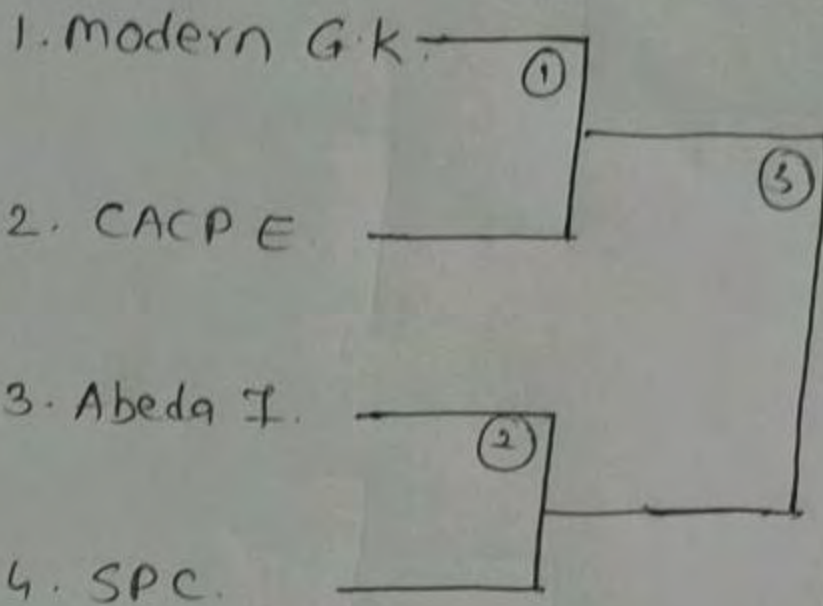 1. Modern G.K.
①
③
2. CACPE
3. Abeda I.
②
4. SPC.